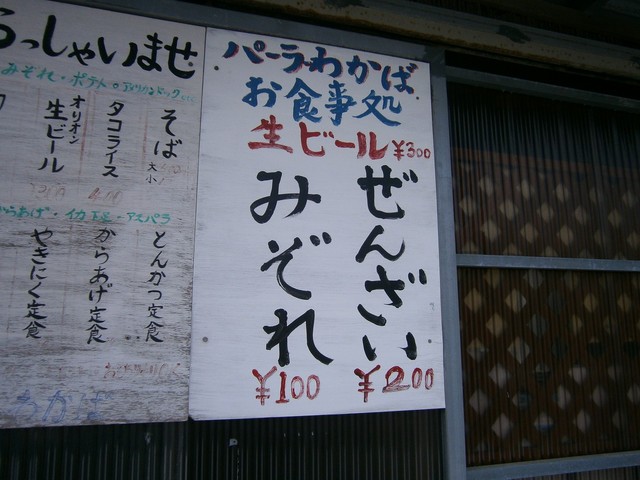 パーラーわかば
お食事処
生ビール ¥300
ぜんざい ¥200
みぞれ ¥100
らっしゃいませ
みぞれ・ポテト。アメリカンドック
そば 大 小
タコライス
オリオン
生ビール
からあげ・イカ下足・アスパラ
とんかつ定食
からあげ定食
やきにく定食
わかば